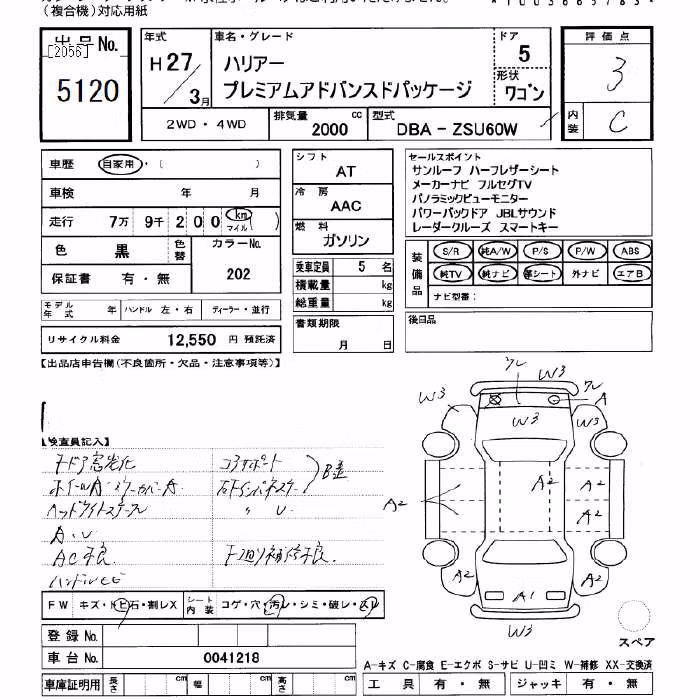 (複合機)対応用紙
出品No.
[2056]
5120
年式
H27/3月
車名・グレード
ハリアー
プレミアムアドバンスドパッケージ
ドア
5
形状
ワゴン
評価点
3
内装
C
2WD・4WD
排気量 2000 cc
型式 DBA-ZSU60W
車歴 自家用・( )
車検 年 月
走行 7万 9千 200 km マイル ( )
色 黒 色替
カラーNo. 202
保証書 有・無
モデル年式 年 ハンドル 左・右 ディーラー・並行
リサイクル料金 12,550 円 預託済
シフト
AT
冷房
AAC
燃料
ガソリン
乗車定員 5 名
積載量 kg
総重量 kg
書類期限
月 日
セールスポイント
サンルーフ ハーフレザーシート
メーカーナビ フルセグTV
パノラミックビューモニター
パワーバックドア JBLサウンド
レーダークルーズ スマートキー
装備品
S/R 純A/W P/S P/W ABS
純TV 純ナビ 革シート 外ナビ エアB
ナビ型番:
後日品
【出品店申告欄(不良箇所・欠品・注意事項等)】
【検査員記入】
コアサポート
B差
AC不良
下廻り補修不良
FW キズ・トビ石・割レX
シート内装 コゲ・穴・汚レ・シミ・破レ・スレ
登録No.
車台No. 0041218
車庫証明用 長さ cm 幅 cm 高さ cm
W3
W3
A
W3
W3
A2
A2
A2
A2
A2
A2
A1
W3
スペア
A-キズ C-腐食 E-エクボ S-サビ U-凹ミ W-補修 XX-交換済
工具 有・無 ジャッキ 有・無